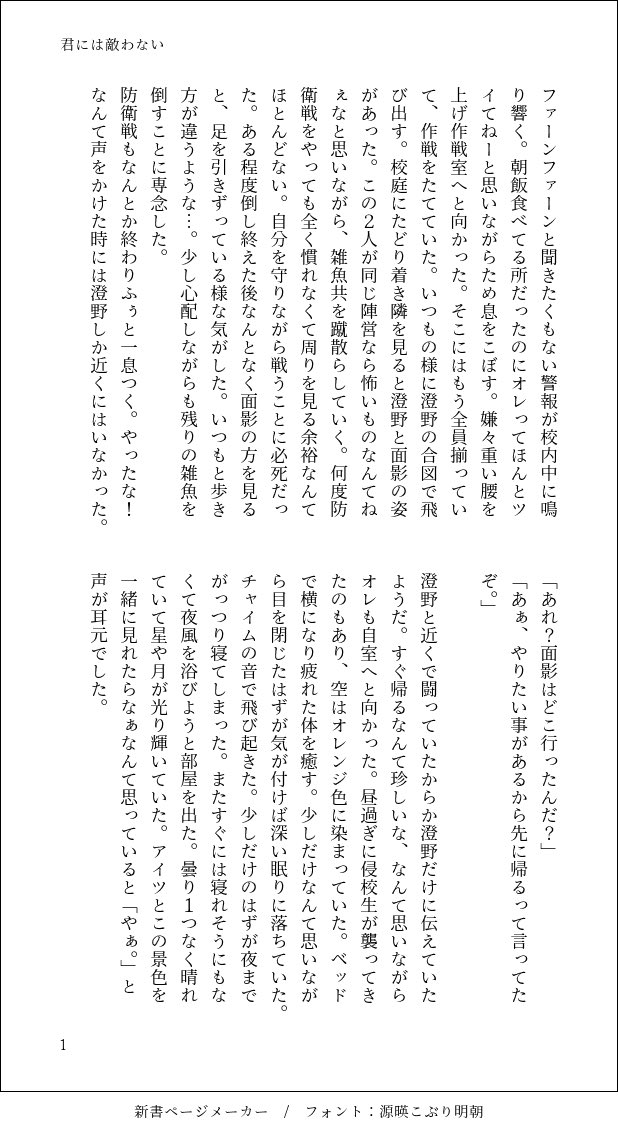 君には敵わない
ファーンファーンと聞きたくもない警報が校内中に鳴
り響く。朝飯食べてる所だったのにオレってほんとツ
イてねーと思いながらため息をこぼす。嫌々重い腰を
上げ作戦室へと向かった。そこにはもう全員揃ってい
て、作戦をたてていた。いつもの様に澄野の合図で飛
び出す。校庭にたどり着き隣を見ると澄野と面影の姿
があった。この2人が同じ陣営なら怖いものなんてね
ぇなと思いながら、雑魚共を蹴散らしていく。何度防
衛戦をやっても全く慣れなくて周りを見る余裕なんて
ほとんどない。自分を守りながら戦うことに必死だっ
た。ある程度倒し終えた後なんとなく面影の方を見る
と、足を引きずっている様な気がした。いつもと歩き
方が違うような…。少し心配しながらも残りの雑魚を
倒すことに専念した。
防衛戦もなんとか終わりふぅと一息つく。やったな！
なんて声をかけた時には澄野しか近くにはいなかった。
「あれ？面影はどこ行ったんだ？」
「あぁ、やりたい事があるから先に帰るって言ってた
ぞ。」
澄野と近くで闘っていたからか澄野だけに伝えていた
ようだ。すぐ帰るなんて珍しいな、なんて思いながら
オレも自室へと向かった。昼過ぎに侵校生が襲ってき
たのもあり、空はオレンジ色に染まっていた。ベッド
で横になり疲れた体を癒す。少しだけなんて思いなが
ら目を閉じたはずが気が付けば深い眠りに落ちていた。
チャイムの音で飛び起きた。少しだけのはずが夜まで
がっつり寝てしまった。またすぐには寝れそうにもな
くて夜風を浴びようと部屋を出た。曇り1つなく晴れ
ていて星や月が光り輝いていた。アイツとこの景色を
一緒に見れたらなぁなんて思っていると「やぁ。」と
声が耳元でした。
1
新書ページメーカー / フォント：源暎こぶり明朝